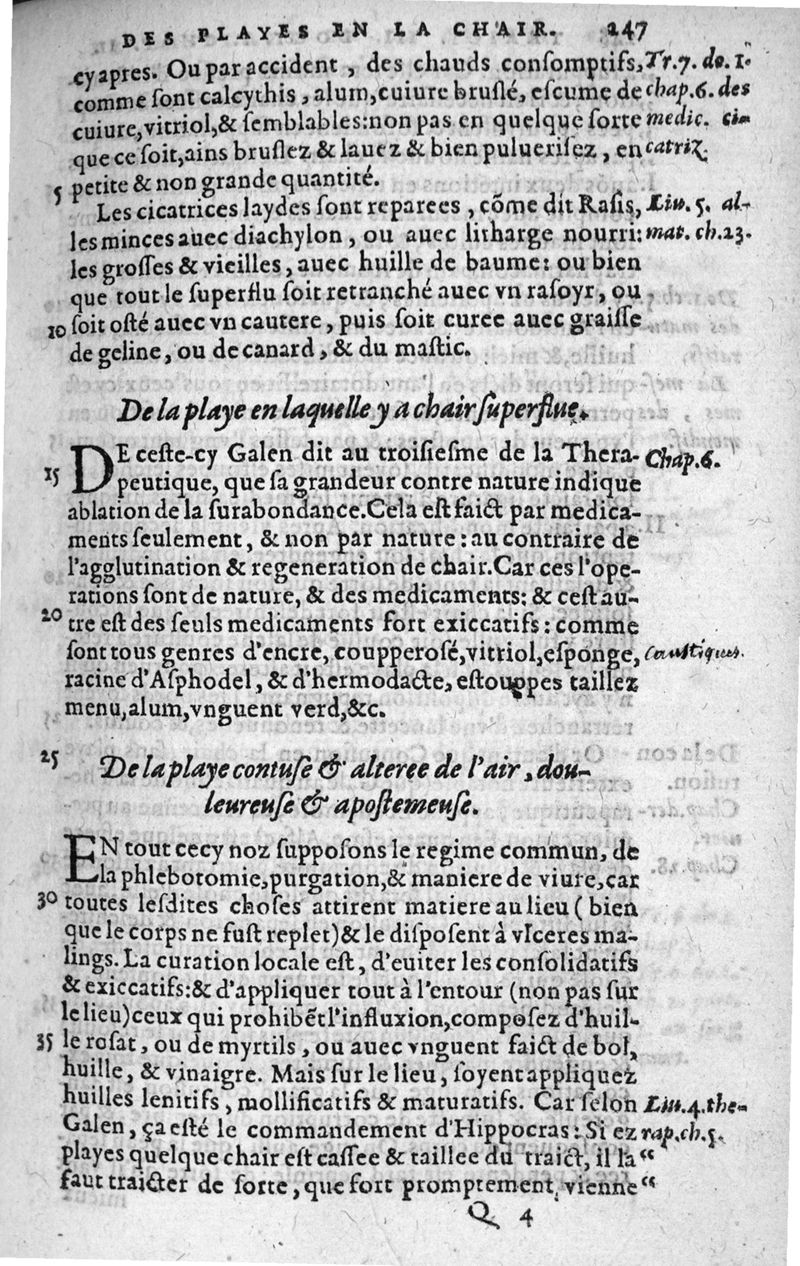 DES PLAYES EN LA CHAIR. 247
cy apres. Ou par accident, des chauds consomptifs, Tr. 7. do. 1.
comme ſont calcythis, alum, cuiure bruſlé, eſcume de chap. 6. des
cuiure, vitriol, & ſemblables: non pas en quelque ſorte medic. ci-
que ce ſoit, ains bruſlez & lauez & bien pulueriſez, en catriz.
5 petite & non grande quantité.
Les cicatrices laydes ſont reparees, cõme dit Raſis, Liu. 5. al-
les minces auec diachylon, ou auec litharge nourri: mat. ch. 23.
les groſſes & vieilles, auec huille de baume: ou bien
que tout le ſuperflu ſoit retranché auec vn raſoyr, ou
10 ſoit oſté auec vn cautere, puis ſoit curee auec graiſſe
de geline, ou de canard, & du maſtic.
De la playe en laquelle y a chair ſuperflue.
DE ceſte-cy Galen dit au troiſieſme de la Thera- Chap. 6.
15 peutique, que ſa grandeur contre nature indique
ablation de la ſurabondance. Cela eſt faict par medica-
ments ſeulement, & non par nature: au contraire de
l'agglutination & regeneration de chair. Car ces l'ope-
rations ſont de nature, & des medicaments: & ceſt au-
20 tre eſt des ſeuls medicaments fort exiccatifs: comme
ſont tous genres d'encre, coupperoſé, vitriol, eſponge, Cauſtiques.
racine d'Aſphodel, & d'hermodacte, eſtouppes taillez
menu, alum, vnguent verd, &c.
25 De la playe contuſe & alteree de l'air, dou-
leureuſe & apoſtemeuſe.
EN tout cecy noz ſuppoſons le regime commun, de
la phlebotomie, purgation, & maniere de viure, car
30 toutes leſdites choſes attirent matiere au lieu (bien
que le corps ne fuſt replet) & le diſpoſent à vlceres ma-
lings. La curation locale eſt, d'euiter les conſolidatifs
& exiccatifs: & d'appliquer tout à l'entour (non pas ſur
le lieu) ceux qui prohibẽt l'influxion, compoſez d'huil-
35 le roſat, ou de myrtils, ou auec vnguent faict de bol,
huille, & vinaigre. Mais ſur le lieu, ſoyent appliquez
huilles lenitifs, mollificatifs & maturatifs. Car ſelon Liu. 4. the-
Galen, ça eſté le commandement d'Hippocras: Si ez rap. ch. 5.
playes quelque chair eſt caſſee & taillee du traict, il la “
faut traicter de ſorte, que fort promptement, vienne “
Q 4